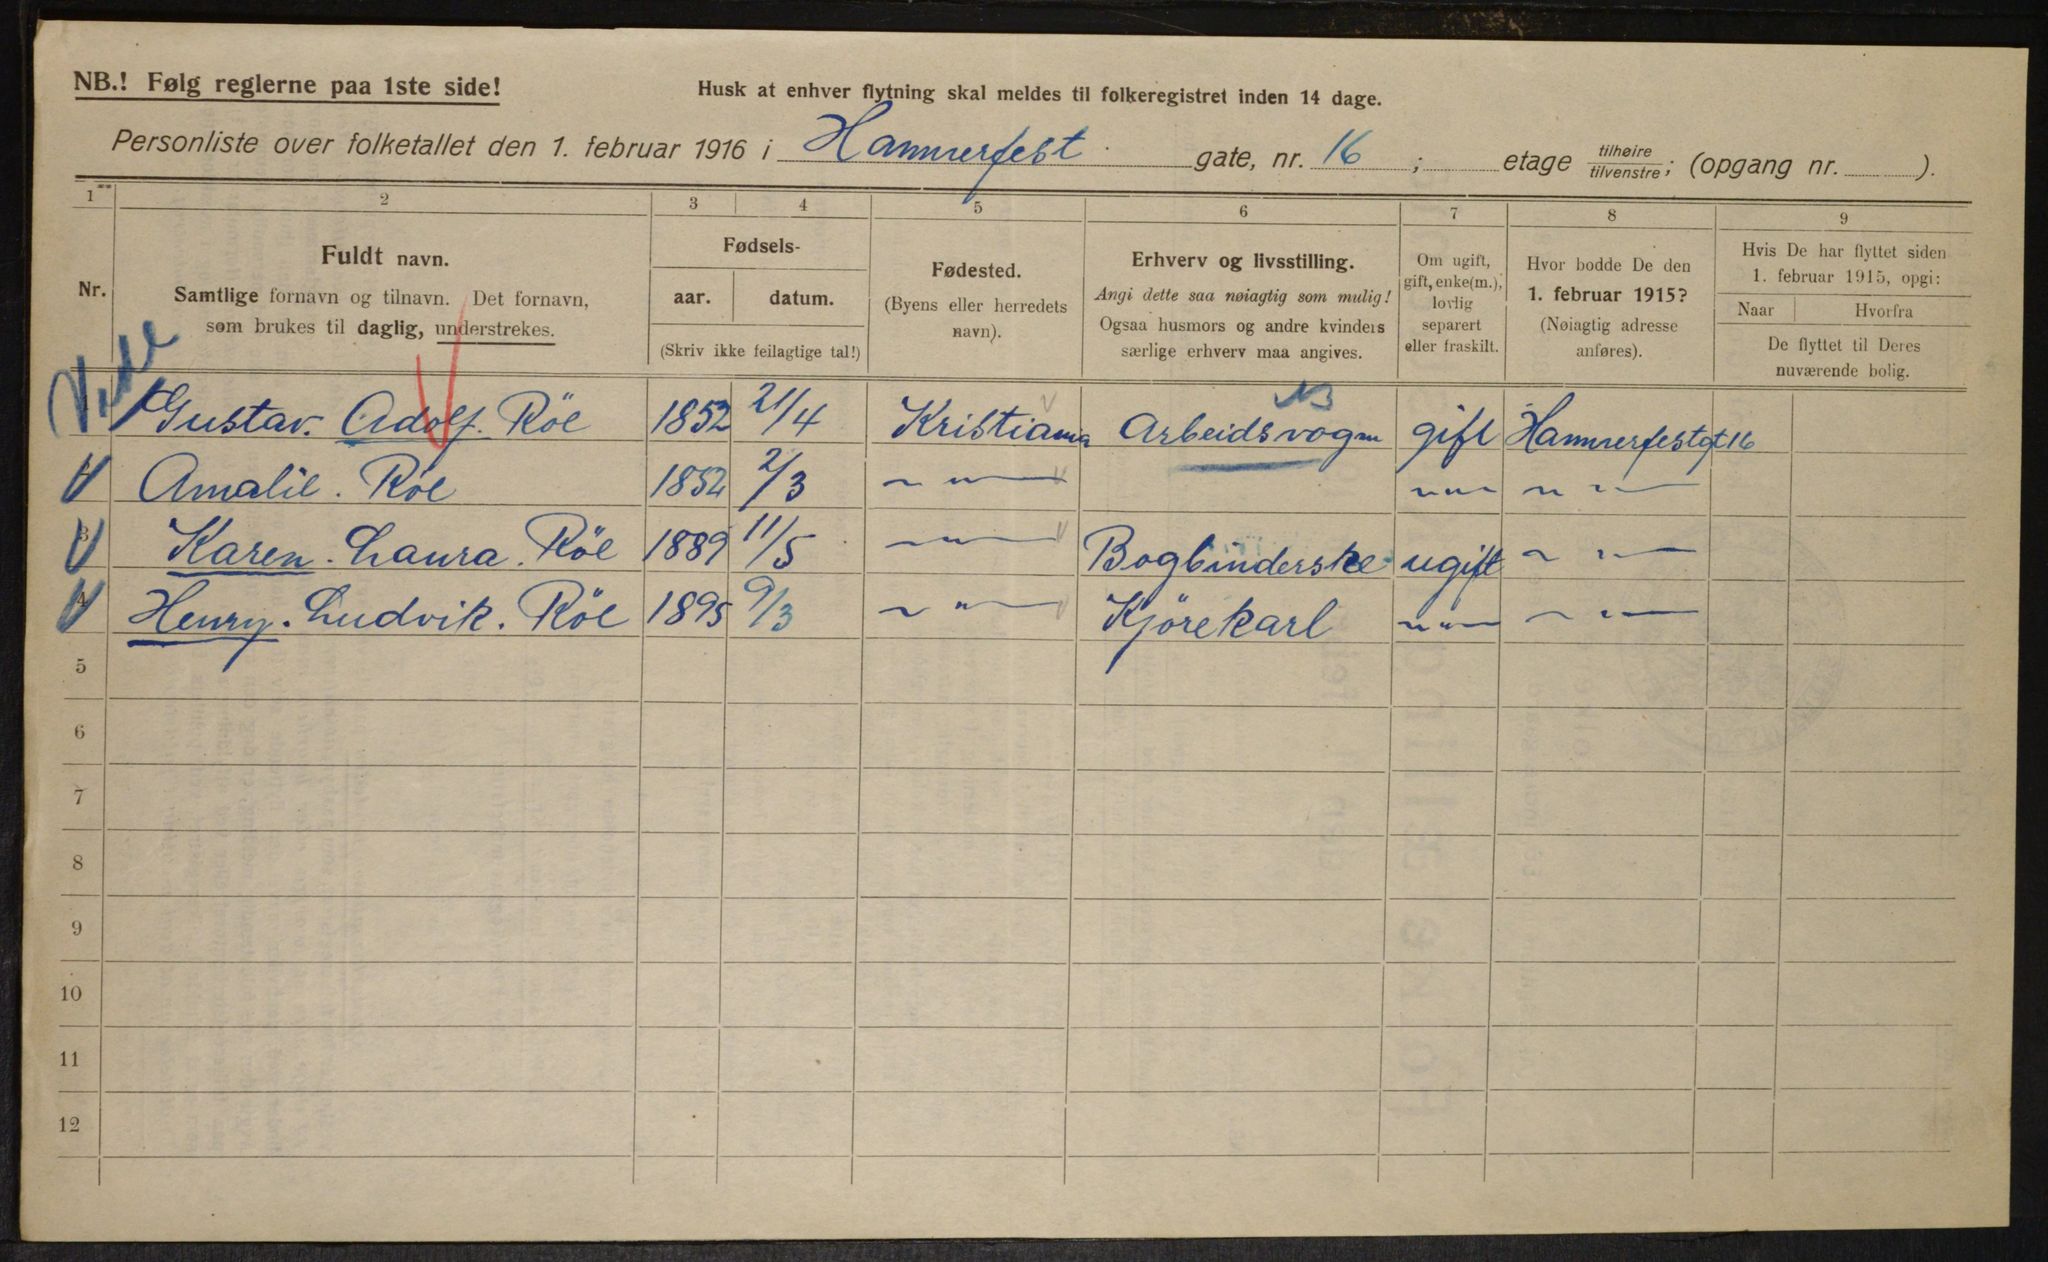 NB.! Følg reglerne paa 1ste side!
Husk at enhver flytning skal meldes til folkeregistret inden 14 dage.
Personliste over folketallet den 1. februar 1916 i Hammerfest gate, nr. 16 ; etage tilhøire/tilvenstre; (opgang nr. ).
1 2 3 4 5 6 7 8 9
Nr.
Fuldt navn.
Samtlige fornavn og tilnavn. Det fornavn,
som brukes til daglig, understrekes.
Fødsels-
aar. datum.
(Skriv ikke feilagtige tal!)
Fødested.
(Byens eller herredets
navn).
Erhverv og livsstilling.
Angi dette saa nøiagtig som mulig!
Ogsaa husmors og andre kvinders
særlige erhverv maa angives.
Om ugift,
gift, enke(m.),
lovlig
separert
eller fraskilt.
Hvor bodde De den
1. februar 1915?
(Nøiagtig adresse
anføres).
Hvis De har flyttet siden
1. februar 1915, opgi:
Naar Hvorfra
De flyttet til Deres
nuværende bolig.
NB
Gustav. Adolf. Röe 1852 21/4 Kristiania Arbeidsvogm gift Hammerfestgt 16
Amalie. Röe 1852 2/3 — " — " — " —
3 Karen. Laura. Röe 1889 11/5 — " — Bogbinderske ugift — " —
4 Henry. Ludvik. Röe 1895 9/3 — " — Kjörekarl — " — " —
5
6
7
8
9
10
11
12